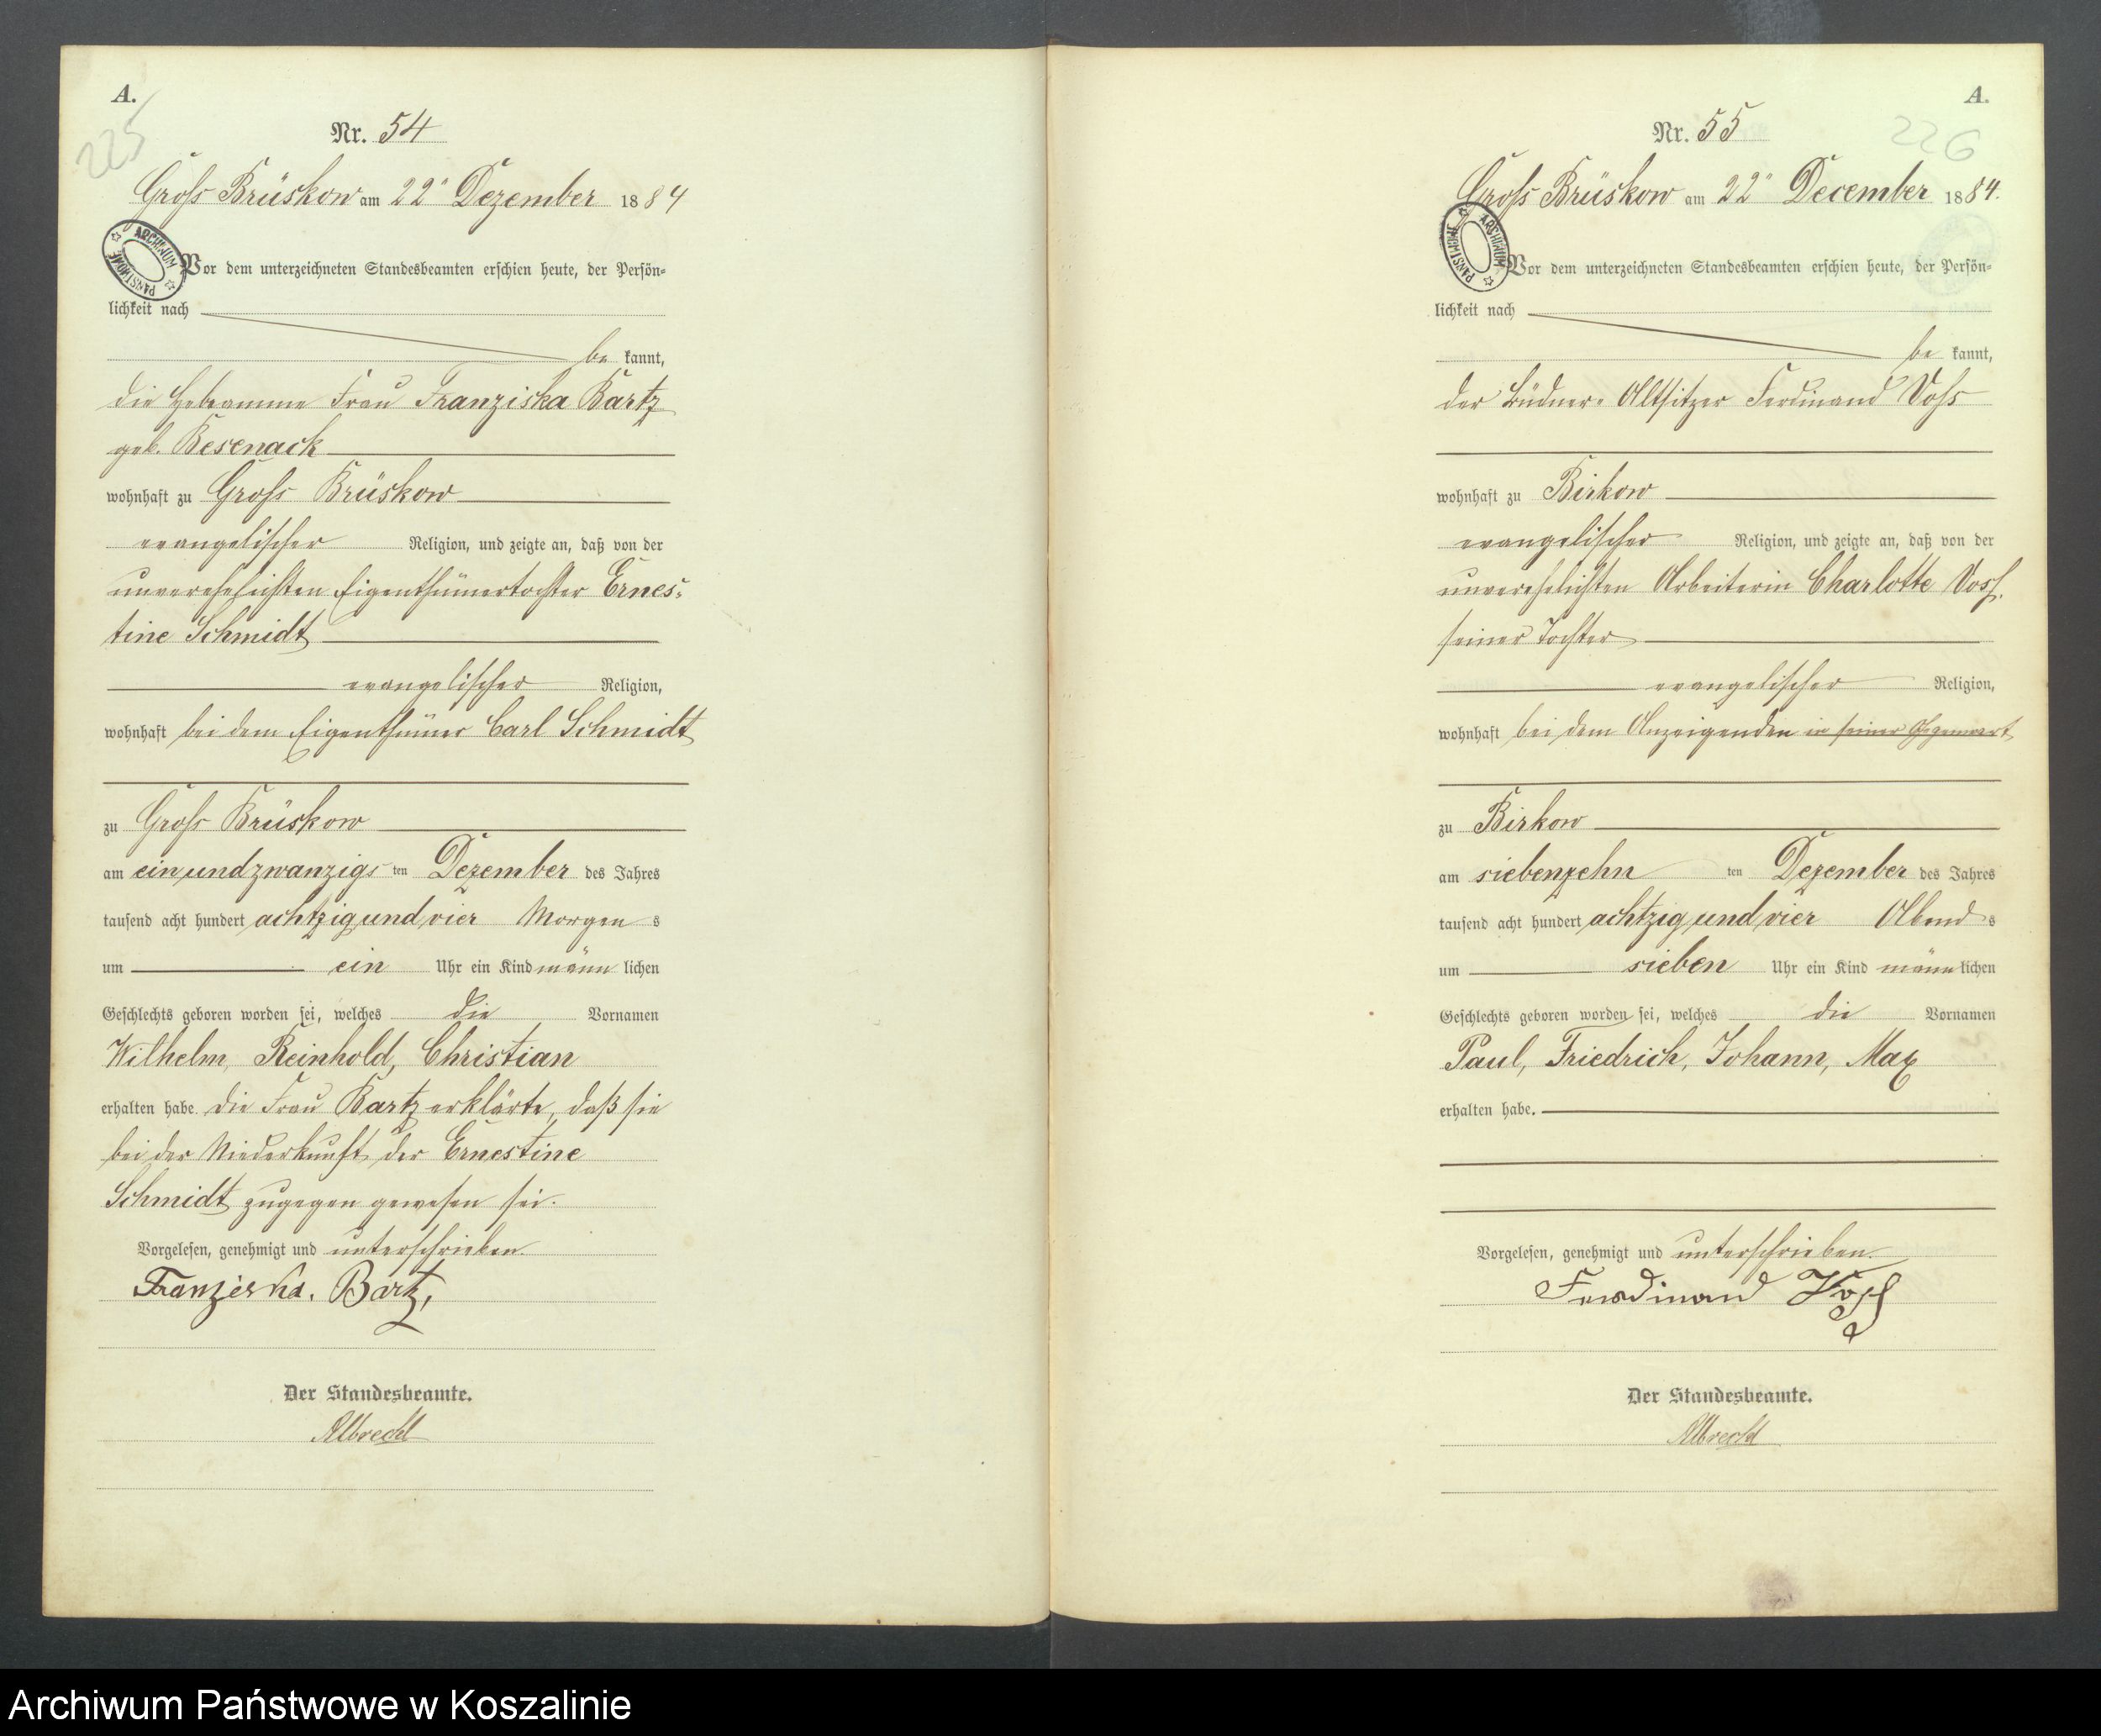 A.
225
Nr. 54
Groß Brüskow am 22" Dezember 1884
ARCHIWUM PAŃSTWOWE
Vor dem unterzeichneten Standesbeamten erschien heute, der Persön-
lichkeit nach
be kannt,
die Hebeamme Frau Franziska Bartz
geb. Besenack
wohnhaft zu Groß Brüskow
evangelischer Religion, und zeigte an, daß von der
unverehelichten Eigenthümertochter Ernes-
tine Schmidt
evangelischer Religion,
wohnhaft bei dem Eigenthümer Carl Schmidt
zu Groß Brüskow
am einundzwanzigs ten Dezember des Jahres
tausend acht hundert achtzig und vier Morgen s
um ein Uhr ein Kind männ lichen
Geschlechts geboren worden sei, welches die Vornamen
Wilhelm, Reinhold, Christian
erhalten habe. Die Frau Bartz erklärte, daß sie
bei der Niederkunft der Ernestine
Schmidt zugegen gewesen sei.
Vorgelesen, genehmigt und unterschrieben.
Franziska. Bartz,
Der Standesbeamte.
Albrecht
A.
226
Nr. 55
Groß Brüskow am 22" December 1884.
ARCHIWUM PAŃSTWOWE
Vor dem unterzeichneten Standesbeamten erschien heute, der Persön-
lichkeit nach
be kannt,
der Büdner-Altsitzer Ferdinand Voß
wohnhaft zu Birkow
evangelischer Religion, und zeigte an, daß von der
unverehelichten Arbeiterin Charlotte Voss,
seiner Tochter
evangelischer Religion,
wohnhaft bei dem Anzeigenden in seiner Gegenwart
zu Birkow
am siebenzehn ten Dezember des Jahres
tausend acht hundert achtzig und vier Abend s
um sieben Uhr ein Kind männ lichen
Geschlechts geboren worden sei, welches die Vornamen
Paul, Friedrich, Johann, Max
erhalten habe.
Vorgelesen, genehmigt und unterschrieben.
Ferdinand Voß
Der Standesbeamte.
Albrecht
Archiwum Państwowe w Koszalinie